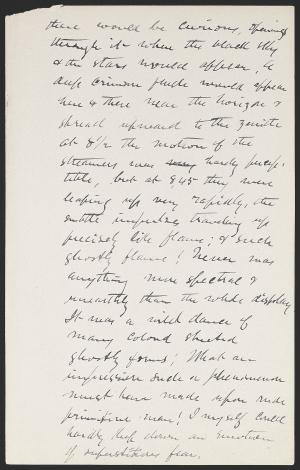 there would be curious openings
through it when the black sky
& the stars would appear, A
deep crimson flude would appear
here & there near the horizon &
spread upward to the zenith
at 8½ the motion of the
streamers was hardly percep-
tible, but at 8,45 they were
leaping up very rapidly, the
subtle impulses traveling up
precisely like flame; & such
ghostly flame! Never was
anything more spectral &
unearthly than the whole display
It was a wild dance of
many colored sheeted
ghostly forms! What an
impression such a phenomenon
must have made upon rude
primitive man! I myself could
hardly keep down an emotion
of superstitious fear.